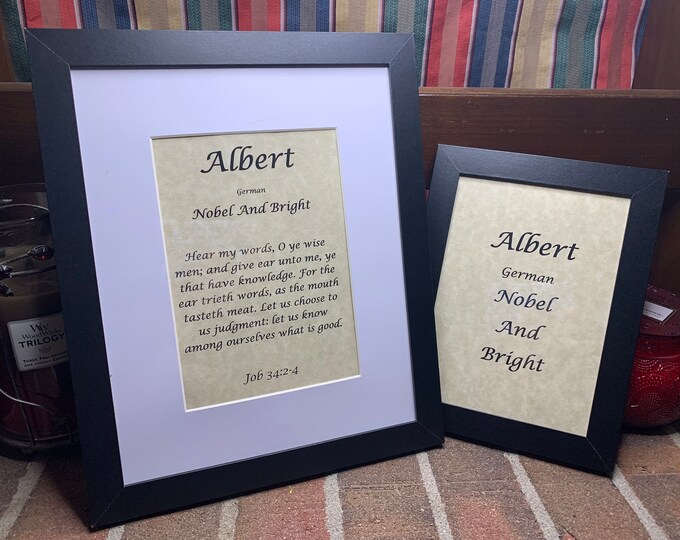 Albert
German
Nobel And Bright
Hear my words, O ye wise
men; and give ear unto me, ye
that have knowledge. For the
ear trieth words, as the mouth
tasteth meat. Let us choose to
us judgment: let us know
among ourselves what is good.
Job 34:2-4
Albert
German
Nobel
And
Bright
WoodWick
TRILOGY